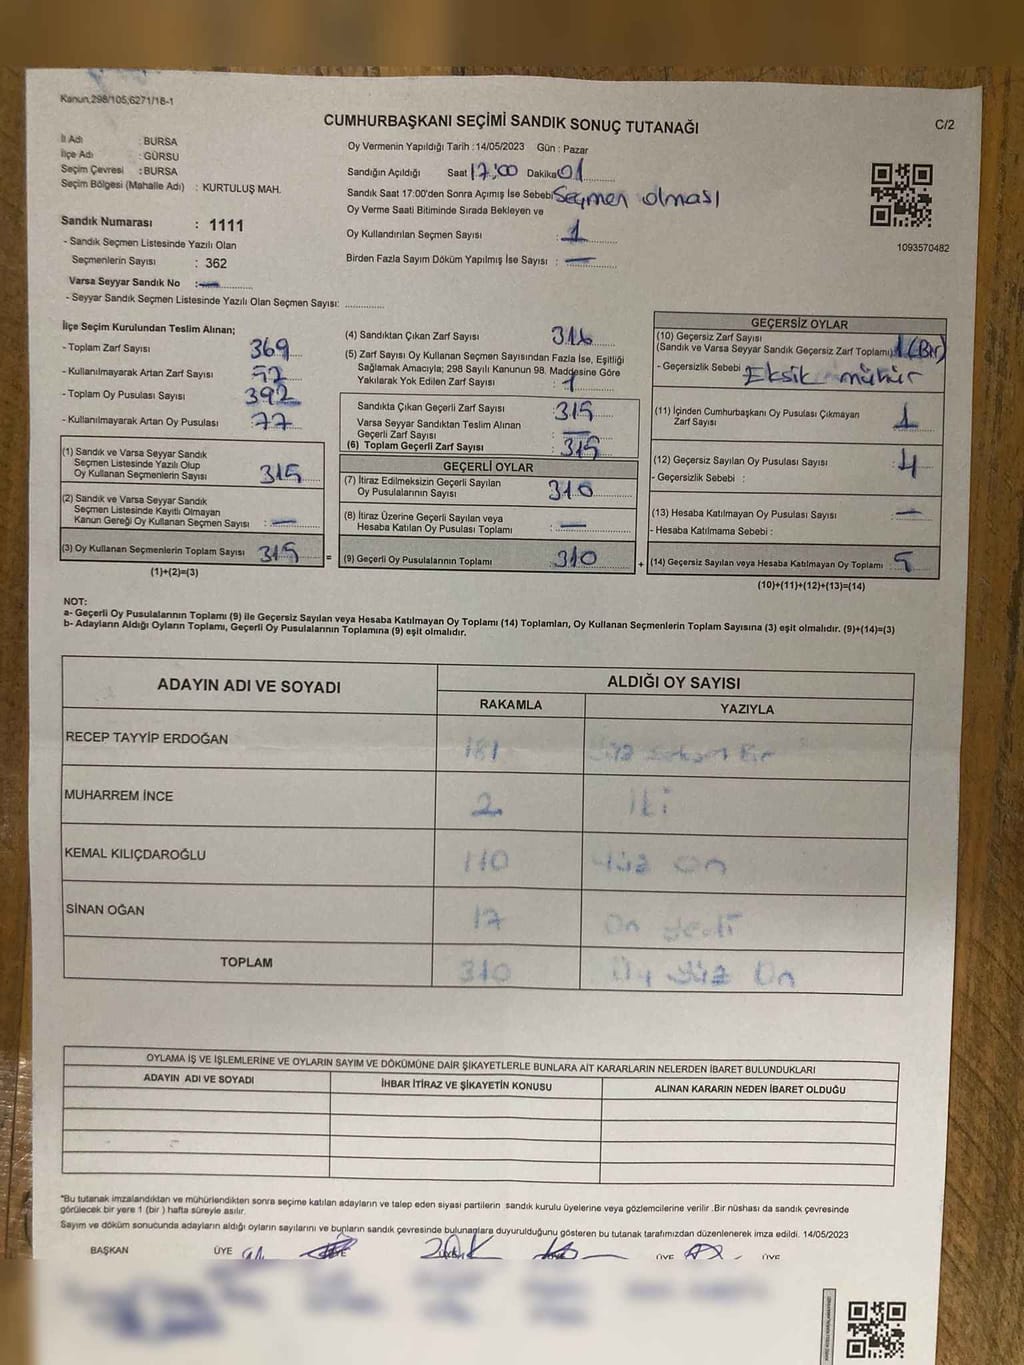 Kanun,298/105,6271/18-1
CUMHURBAŞKANI SEÇİMİ SANDIK SONUÇ TUTANAĞI
C/2
İl Adı : BURSA
İlçe Adı : GÜRSU
Seçim Çevresi : BURSA
Seçim Bölgesi (Mahalle Adı) : KURTULUŞ MAH.
Sandık Numarası : 1111
- Sandık Seçmen Listesinde Yazılı Olan
Seçmenlerin Sayısı : 362
Varsa Seyyar Sandık No : —
- Seyyar Sandık Seçmen Listesinde Yazılı Olan Seçmen Sayısı:
Oy Vermenin Yapıldığı Tarih : 14/05/2023 Gün : Pazar
Sandığın Açıldığı Saat 17:00 Dakika 01
Sandık Saat 17:00'den Sonra Açılmış İse Sebebi Seçmen olması
Oy Verme Saati Bitiminde Sırada Bekleyen ve
Oy Kullandırılan Seçmen Sayısı : 1
Birden Fazla Sayım Döküm Yapılmış İse Sayısı : —
1093570482
İlçe Seçim Kurulundan Teslim Alınan;
- Toplam Zarf Sayısı 369
- Kullanılmayarak Artan Zarf Sayısı
- Toplam Oy Pusulası Sayısı 392
- Kullanılmayarak Artan Oy Pusulası : 77
(1) Sandık ve Varsa Seyyar Sandık
Seçmen Listesinde Yazılı Olup
Oy Kullanan Seçmenlerin Sayısı 315
(2) Sandık ve Varsa Seyyar Sandık
Seçmen Listesinde Kayıtlı Olmayan
Kanun Gereği Oy Kullanan Seçmen Sayısı : —
(3) Oy Kullanan Seçmenlerin Toplam Sayısı 315 =
(1)+(2)=(3)
(4) Sandıktan Çıkan Zarf Sayısı 316
(5) Zarf Sayısı Oy Kullanan Seçmen Sayısından Fazla İse, Eşitliği
Sağlamak Amacıyla; 298 Sayılı Kanunun 98. Maddesine Göre
Yakılarak Yok Edilen Zarf Sayısı : 1
Sandıkta Çıkan Geçerli Zarf Sayısı : 315
Varsa Seyyar Sandıktan Teslim Alınan
Geçerli Zarf Sayısı : —
(6) Toplam Geçerli Zarf Sayısı : 315
GEÇERLİ OYLAR
(7) İtiraz Edilmeksizin Geçerli Sayılan
Oy Pusulalarının Sayısı : 310
(8) İtiraz Üzerine Geçerli Sayılan veya
Hesaba Katılan Oy Pusulası Toplamı : —
(9) Geçerli Oy Pusulalarının Toplamı 310 +
GEÇERSİZ OYLAR
(10) Geçersiz Zarf Sayısı
(Sandık ve Varsa Seyyar Sandık Geçersiz Zarf Toplamı) 1 (Bir)
- Geçersizlik Sebebi : Eksik mühür
(11) İçinden Cumhurbaşkanı Oy Pusulası Çıkmayan
Zarf Sayısı : 1
(12) Geçersiz Sayılan Oy Pusulası Sayısı : 4
- Geçersizlik Sebebi :
(13) Hesaba Katılmayan Oy Pusulası Sayısı : —
- Hesaba Katılmama Sebebi :
(14) Geçersiz Sayılan veya Hesaba Katılmayan Oy Toplamı : 5
(10)+(11)+(12)+(13)=(14)
NOT:
a- Geçerli Oy Pusulalarının Toplamı (9) ile Geçersiz Sayılan veya Hesaba Katılmayan Oy Toplamı (14) Toplamları, Oy Kullanan Seçmenlerin Toplam Sayısına (3) eşit olmalıdır. (9)+(14)=(3)
b- Adayların Aldığı Oyların Toplamı, Geçerli Oy Pusulalarının Toplamına (9) eşit olmalıdır.
ADAYIN ADI VE SOYADI ALDIĞI OY SAYISI
RAKAMLA YAZIYLA
RECEP TAYYİP ERDOĞAN 181 Yüz Seksen Bir
MUHARREM İNCE 2 İki
KEMAL KILIÇDAROĞLU 110 Yüz On
SİNAN OĞAN 17 On Yedi
TOPLAM 310 Üç Yüz On
OYLAMA İŞ VE İŞLEMLERİNE VE OYLARIN SAYIM VE DÖKÜMÜNE DAİR ŞİKAYETLERLE BUNLARA AİT KARARLARIN NELERDEN İBARET BULUNDUKLARI
ADAYIN ADI VE SOYADI İHBAR İTİRAZ VE ŞİKAYETİN KONUSU ALINAN KARARIN NEDEN İBARET OLDUĞU
*Bu tutanak imzalandıktan ve mühürlendikten sonra seçime katılan adayların ve talep eden siyasi partilerin sandık kurulu üyelerine veya gözlemcilerine verilir .Bir nüshası da sandık çevresinde
görülecek bir yere 1 (bir ) hafta süreyle asılır.
Sayım ve döküm sonucunda adayların aldığı oyların sayılarını ve bunların sandık çevresinde bulunanlara duyurulduğunu gösteren bu tutanak tarafımızdan düzenlenerek imza edildi. 14/05/2023
BAŞKAN ÜYE ÜYE ÜYE